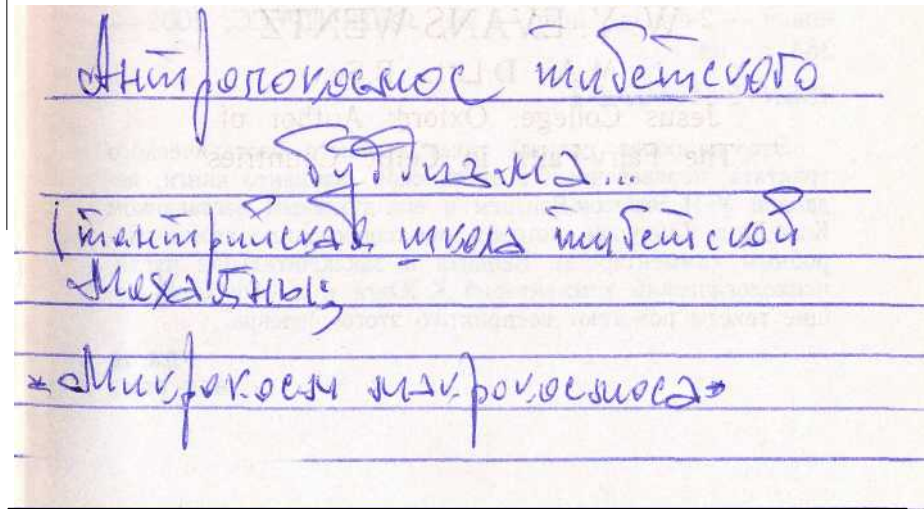 Антропокосмос тибетского
буддизма...
(тантрийская школа тибетской
Махаяны;
"Микрокосм макрокосмоса"